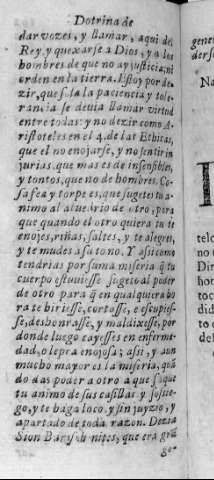 Dotrina de
dar vozes, y llamar, aqui del
Rey, y quexarse a Dios, y a los
hombres de que no ay justicia, ni
orden en la tierra. Estoy por de-
zir, que sola la paciencia y tole-
rancia se deuia llamar virtud
entre todas: y no dezir como A-
ristoteles en el 4. de las Ethicas,
que el no enojarse, y no sentir in
jurias. que mas es de insensibles,
y tontos, que no de hombres. Co-
sa fea y torpe es, que sugetes tu a-
nimo al aluedrio de otro, pera
que quando el otro quiera tu te
enojes, riñas, saltes, y te alegres,
y te mudes a su tono. Y assi como
tendrias por suma miseria q̃ tu
cuerpo estuuiesse sugeto al poder
de otro para q̃ en qualquiera ho
ra te hiriesse, cortasse, e escupies-
se, deshonrasse, y maldixesse, por
donde luego cayesses en enferme-
dad, o lepra enojosa; assi, y aun
mucho mayor es la miseria, quã
do das poder a otro a que saque
tu animo de sus casillas y sossie-
go, y te haga loco, y sin juyzio, y
apartado de toda razon. Dezia
Sion
que era grã
gener
der s
Na
telo
no
Dir
hon
toc
did
to
del